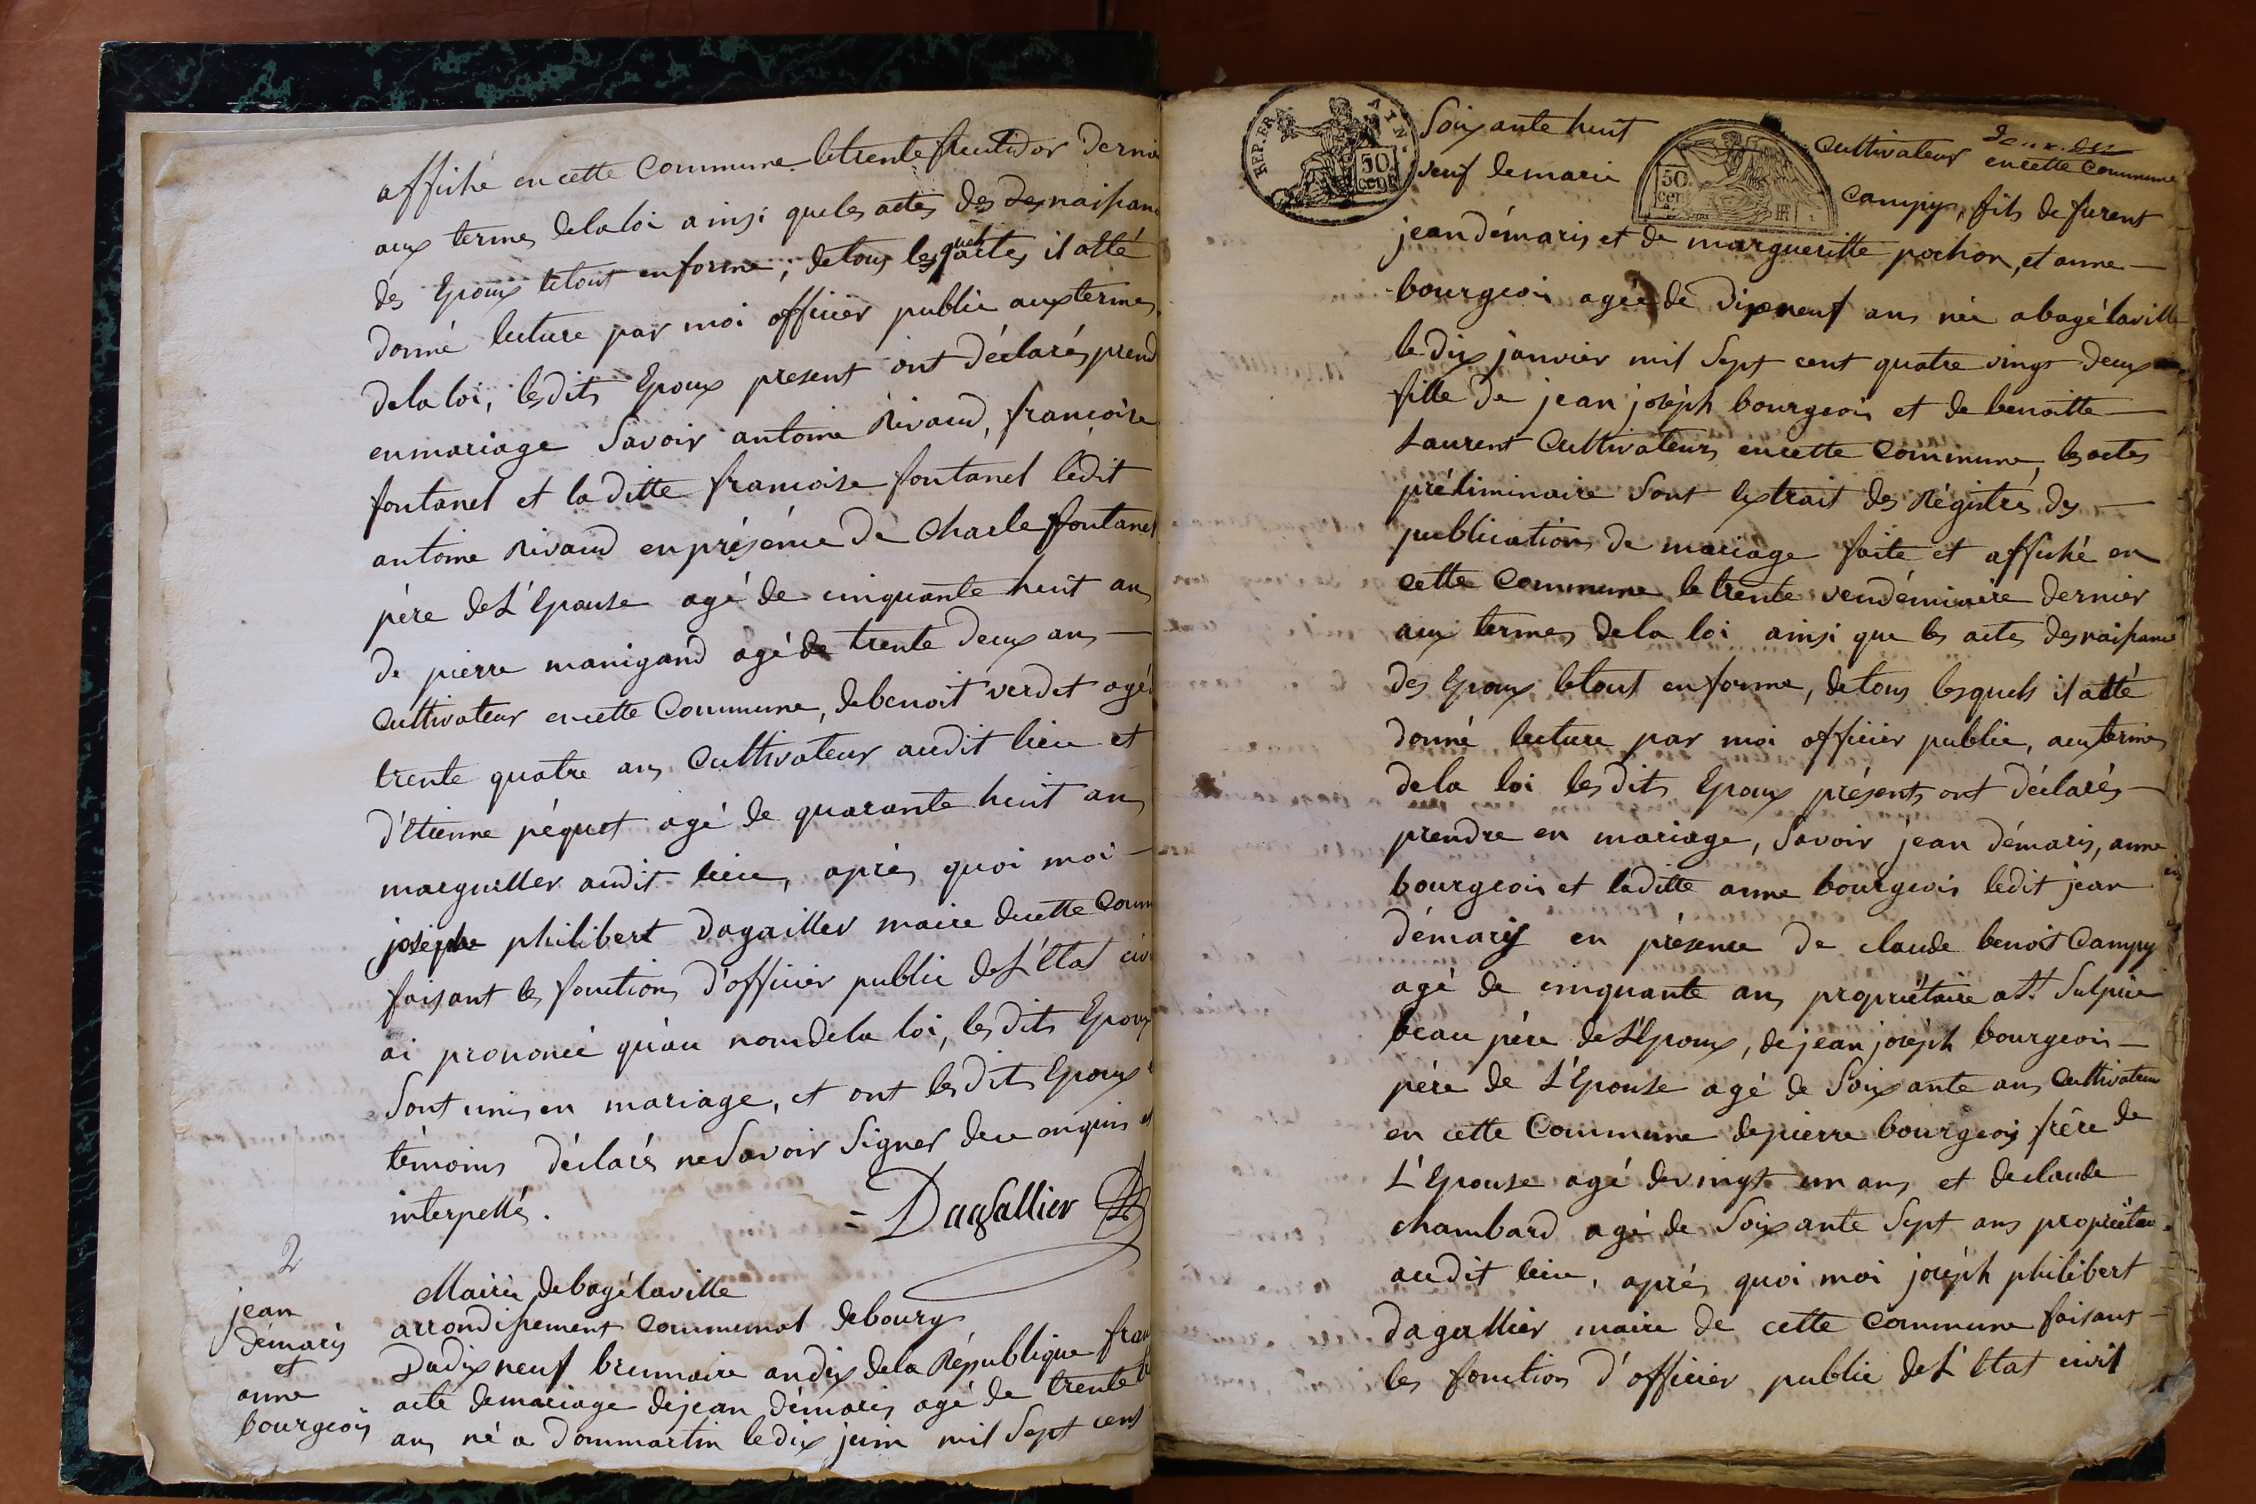 affiché en cette Commune le trente fructidor dernie
aux termes dela loi ainsi que les actes des des naissan
des Epoux le tout en forme, de tous lesquels actes il a été
donné lecture par moi officier public aux termes
dela loi, lesdits Epoux present ont déclarés prend
en mariage Savoir antoine Rivaud, francoise
fontanel et laditte francoise fontanel ledit
antoine Rivaud en présénce de Charle ffontanel
pére de L'Epouse agé de cinquante huit ans
de pierre manigand agé de trente deux ans
Cultivateur en cette Commune, de benoit verdet agé
trente quatre ans Cultivateur audit lieu et
d'Etienne péquet agé de quarante huit ans
marguiller audit lieu, aprés quoi moi
joséphe philibert Dagallier maire de cette Comm
faisant les fonctions d'officier public de L'Etat civi
ai prononcé qu'au nom dela loi, lesdits Epoux
Sont unis en mariage, et ont lesdits Epoux
témoins déclarés ne Savoir Signer de ce enquis et
interpellés.
= Dagallier
2
jean
démaris
et
anne
bourgeois
Mairie de bagélaville
arrondissement Communal de bourg
Du dix neuf brumaire an dix dela République fran
acte de mariage de jean démaris agé de trente
ans né a Dommartin le dix juin mil Sept cent
REP. FRA. AIN
50 cent
50 cent
Soixante huit Cultivateur en cette Commune
veuf de marie Campy, fils de furent
jean démaris et de margueritte pochon, et anne
bourgeois agée de Dix neuf ans née a bagélaville
le dix janvier mil Sept cent quatre vingt deux
fille de jean joséph bourgeois et de benoitte
Laurent Cultivateurs en cette Commune, les actes
préliminaire Sont Extrait des Régistrés des
publications de mariage faite et affiché en
cette Commune le trente vendémiaire dernier
aux termes dela loi ainsi que les actes des naissance
des Epoux le tout en forme, de tous lesquels il a été
donné lecture par moi officier public, aux termes
dela loi lesdits Epoux présents ont déclarés
prendre en mariage, Savoir jean démaris, anne
bourgeois et laditte anne bourgeois ledit jean
démaris en présence de claude benoit Campy
agé de cinquante ans propriétaire a St. Sulpice
beau pére de L'Epoux, de jean joséph bourgeois
pére de L'Epouse agé de Soixante ans Cultivateur
en cette Commune de pierre bourgeois frére de
L'Epouse agé de vingt un ans et de claude
chambard agé de Soixante Sept ans propriétai
audit lieu, aprés quoi moi joséph philibert
dagallier maire de cette Commune faisant
les fonction d'officier public de L'Etat civil